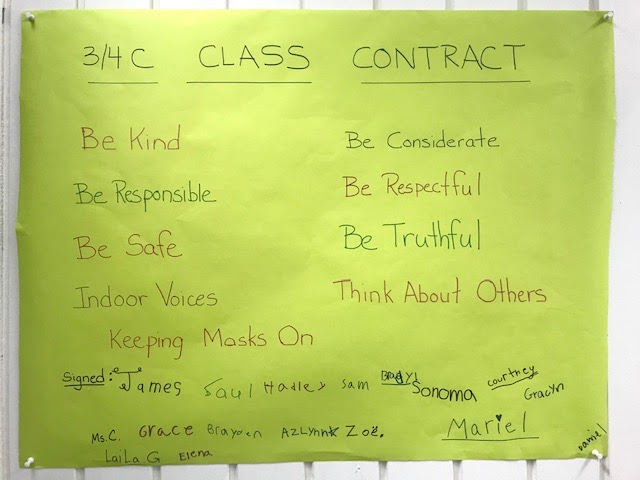 3/4 C CLASS CONTRACT
Be Kind
Be Considerate
Be Responsible
Be Respectful
Be Safe
Be Truthful
Indoor Voices
Think About Others
Keeping Masks On
Signed: James Saul Hadley Sam Brady! Sonoma Courtney Gracyn
Ms.C. Grace Brayden Azlynn Zoë. Mariel Daniel
Laila G Elena